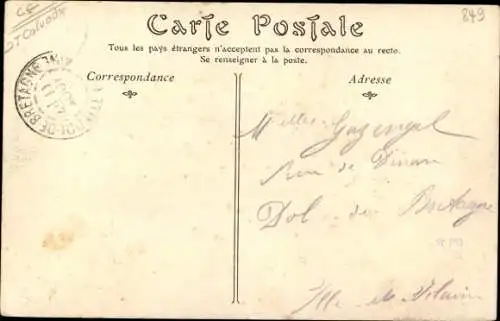 849
Carte Postale
Tous les pays étrangers n'acceptent pas la correspondance au recto.
Se renseigner à la poste.
Correspondance
Adresse
DE BRETAGNE
Melles
Rue de Dinan
Dol de Bretagne
Ille et Vilaine